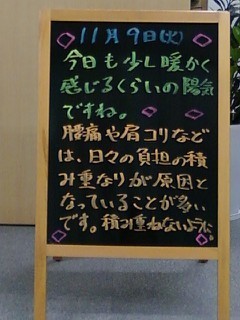 11月9日(火)
今日も少し暖かく
感じるくらいの陽気
ですね。
腰痛や肩コリなど
は、日々の負担の積
み重なりが原因と
なっていることが多い
です。積み重ねないように